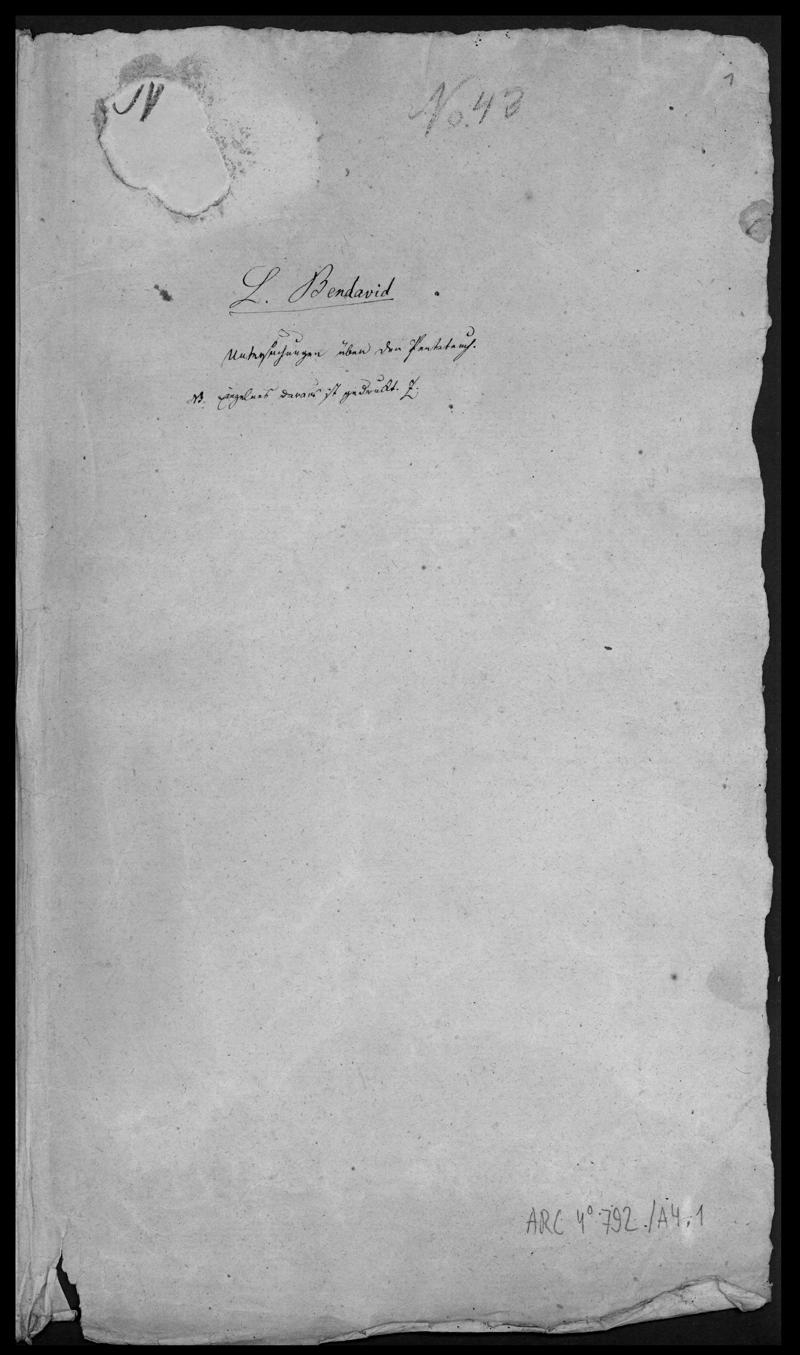 No. 43
1
L. Bendavid
Untersuchungen über den Pentateuch.
NB. Einzelnes daraus ist gedruckt. Z.
ARC 4° 792 /A4.1